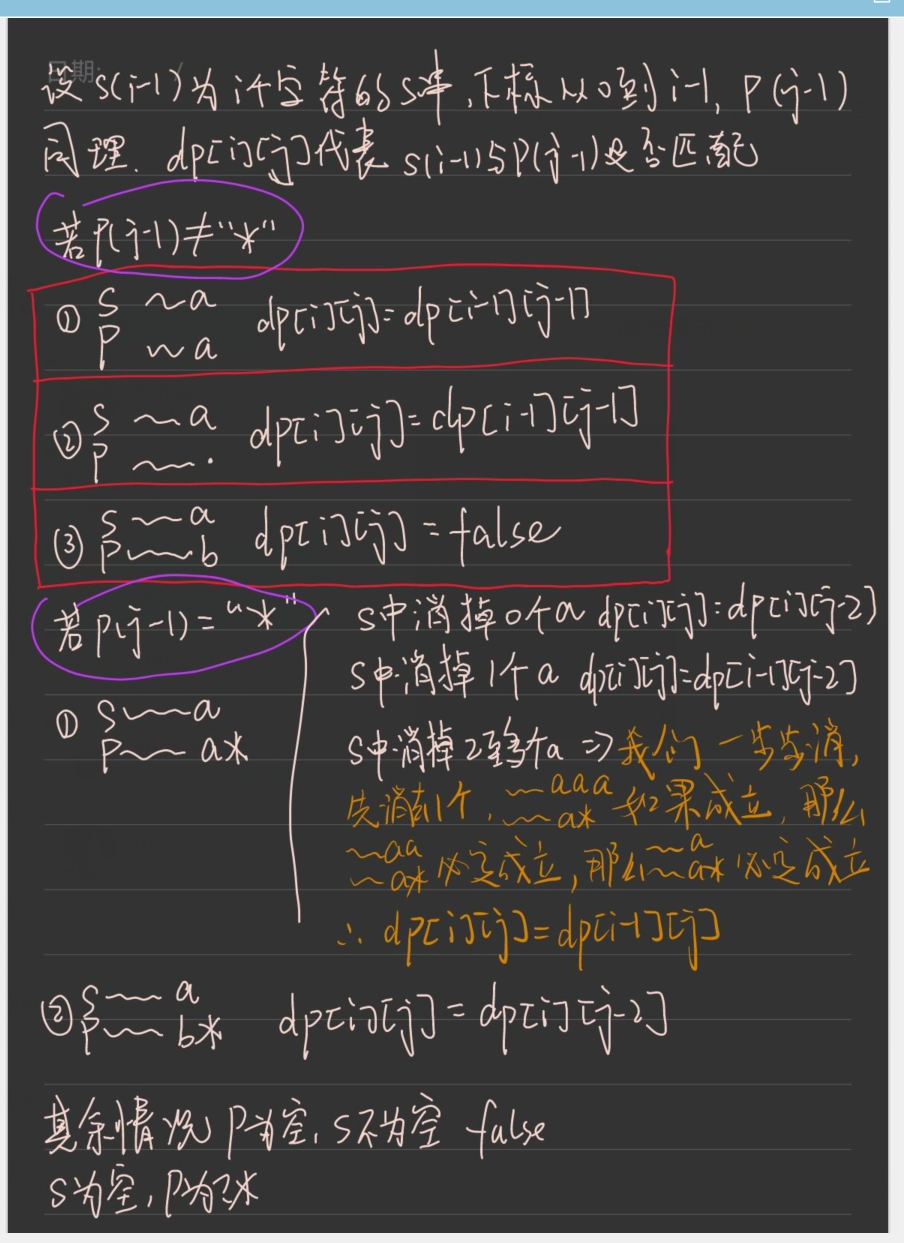 日期: /
设 s(i-1)为 i个字符的S串,下标从0到i-1, P(j-1)
同理. dp[i][j]代表 s(i-1)与P(j-1)是否匹配
若P(j-1)≠"*"
① S ~a dp[i][j]=dp[i-1][j-1]
P ~a
② S ~a dp[i][j]=dp[i-1][j-1]
P ~.
③ S ~a dp[i][j]=false
P ~b
若P(j-1)="*"
① S~a
P~a*
S中消掉0个a dp[i][j]=dp[i][j-2]
S中消掉1个a dp[i][j]=dp[i-1][j-2]
S中消掉2至多个a => 我们一步步消,
先消去1个, ~aaa ~a* 如果成立, 那么
~aa ~a* 必定成立, 那么 ~a ~a* 必定成立
∴ dp[i][j]=dp[i-1][j]
② S~a dp[i][j]=dp[i][j-2]
P~b*
其余情况 P为空, S不为空 false
S为空, P为?*